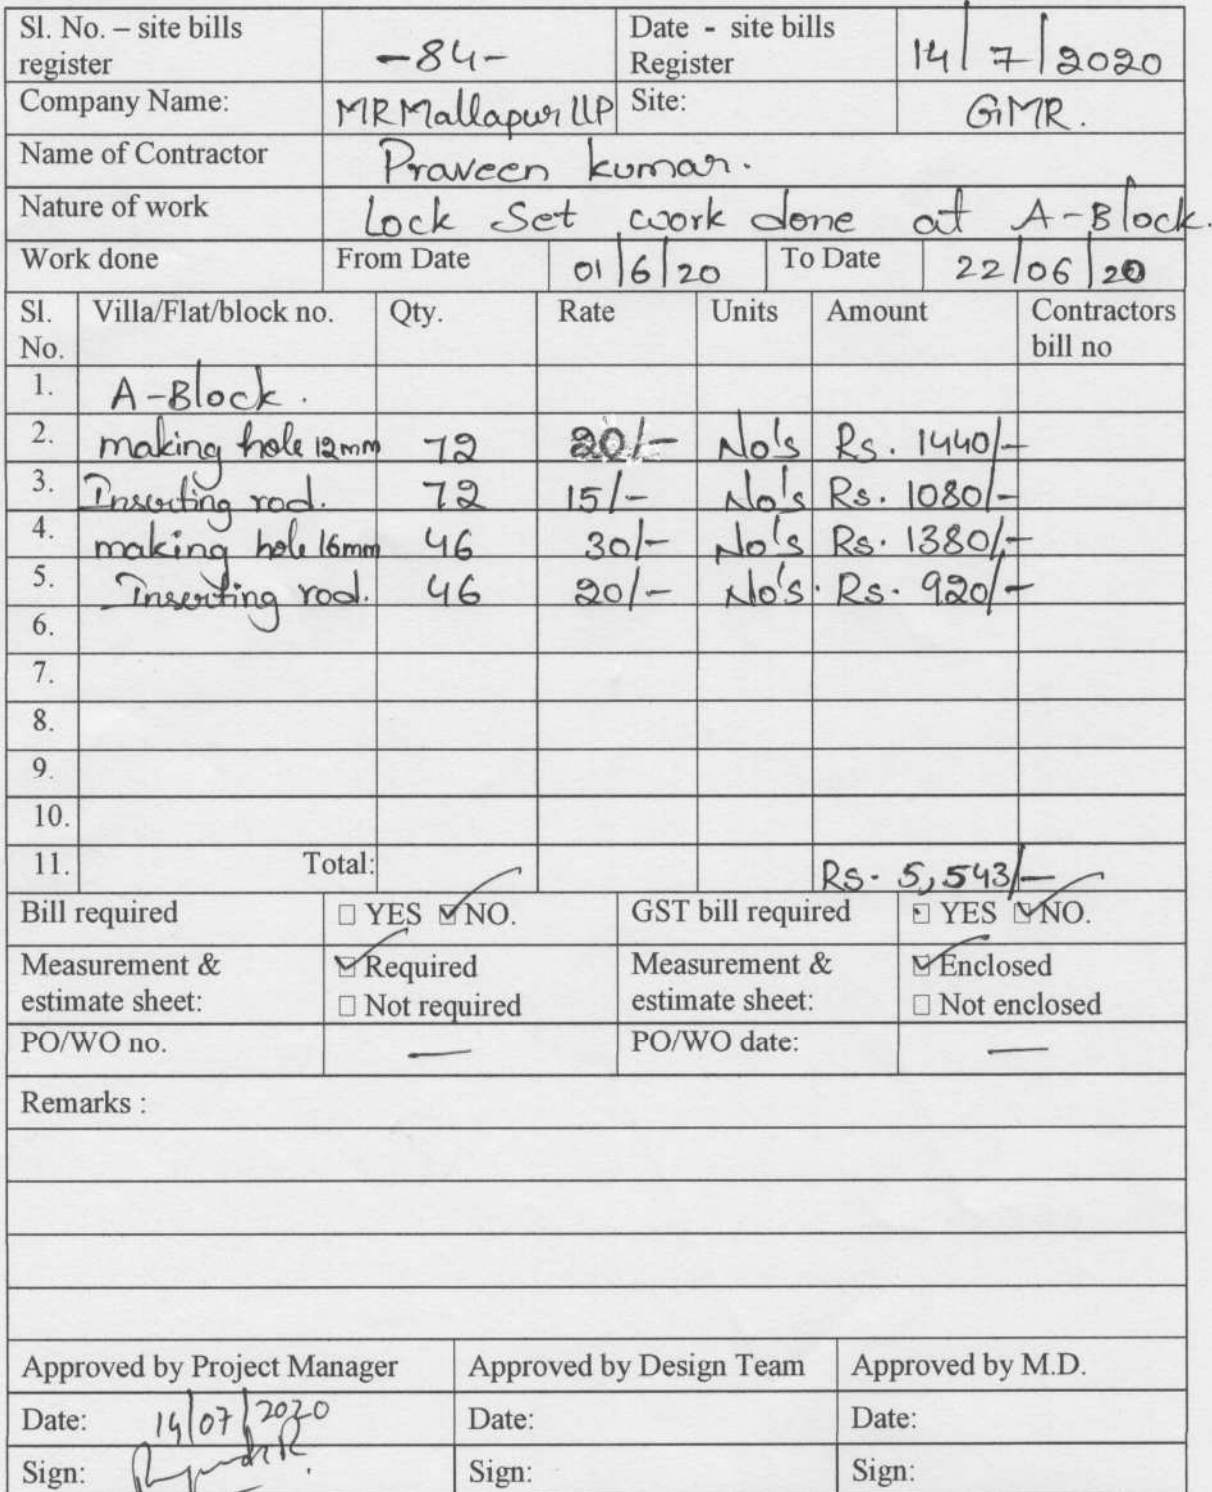 Sl. No. – site bills register -84- Date - site bills Register 14/7/2020
Company Name: MR Mallapur LLP Site: GMR.
Name of Contractor Praveen kumar.
Nature of work Lock Set work done at A-Block.
Work done From Date 01/6/20 To Date 22/06/20
Sl. No. Villa/Flat/block no. Qty. Rate Units Amount Contractors bill no
1. A-Block.
2. making hole 12mm 72 20/- No's Rs. 1440/-
3. Inserting rod. 72 15/- No's Rs. 1080/-
4. making hole 16mm 46 30/- No's Rs. 1380/-
5. Inserting rod. 46 20/- No's. Rs. 920/-
6.
7.
8.
9.
10.
11. Total: Rs. 5,543/-
Bill required □ YES ☑ NO. GST bill required □ YES ☑ NO.
Measurement & estimate sheet: ☑ Required □ Not required Measurement & estimate sheet: ☑ Enclosed □ Not enclosed
PO/WO no. — PO/WO date: —
Remarks :
Approved by Project Manager Approved by Design Team Approved by M.D.
Date: 14/07/2020 Date: Date:
Sign: Sign: Sign: